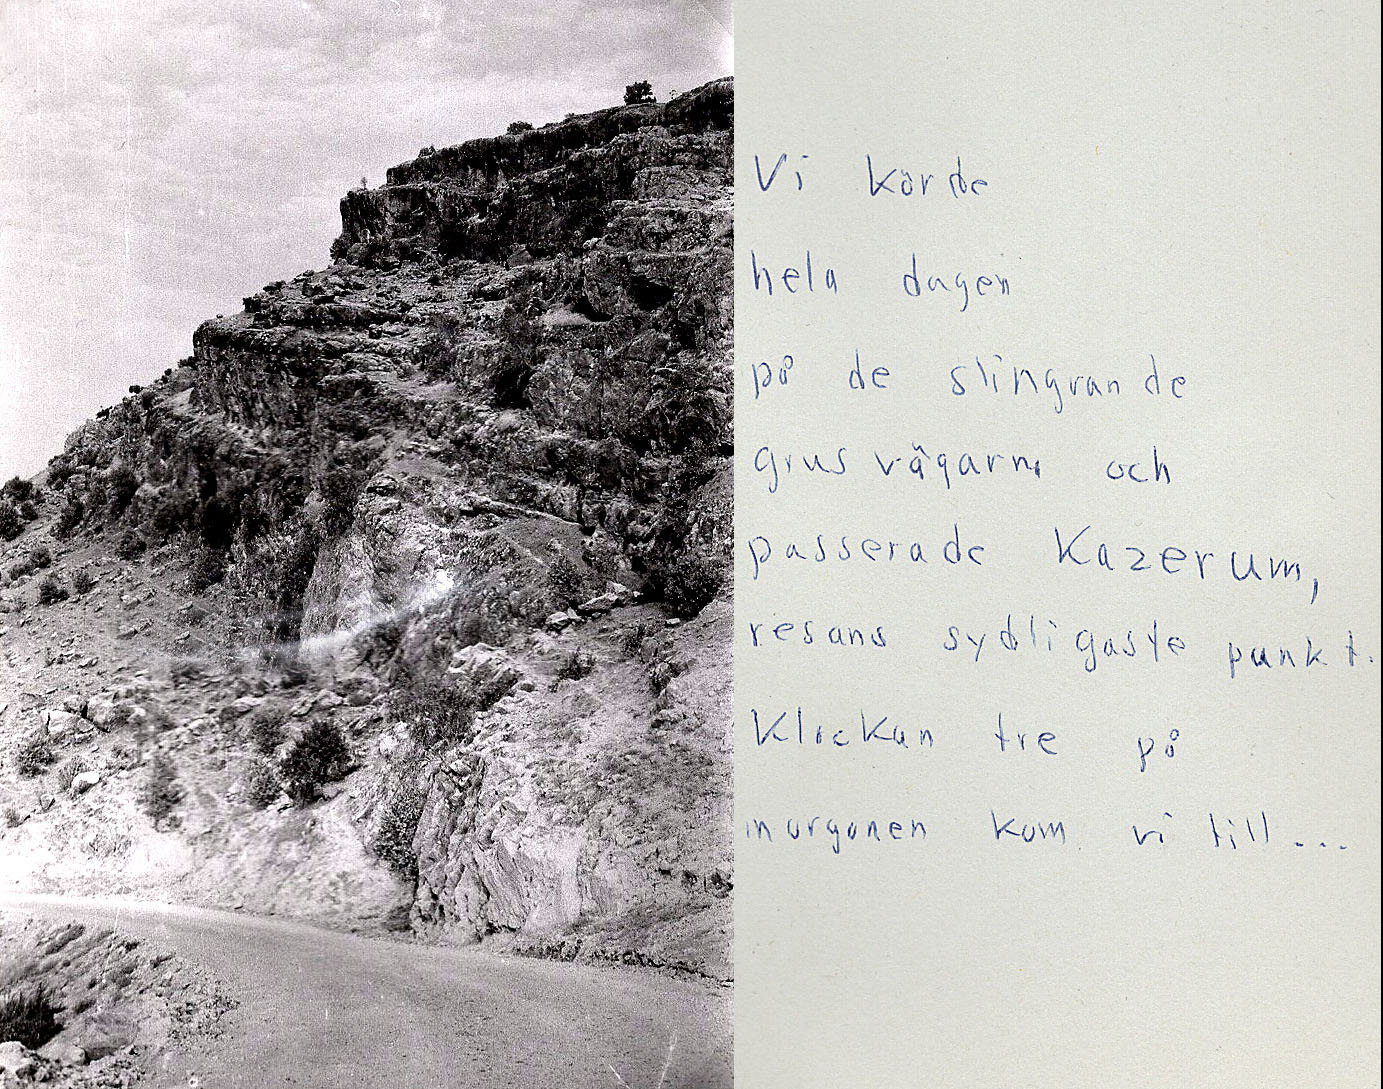 Vi körde
hela dagen
på de slingrande
grusvägarna och
passerade Kazerum,
resans sydligaste punkt.
Klockan tre på
morgonen kom vi till...